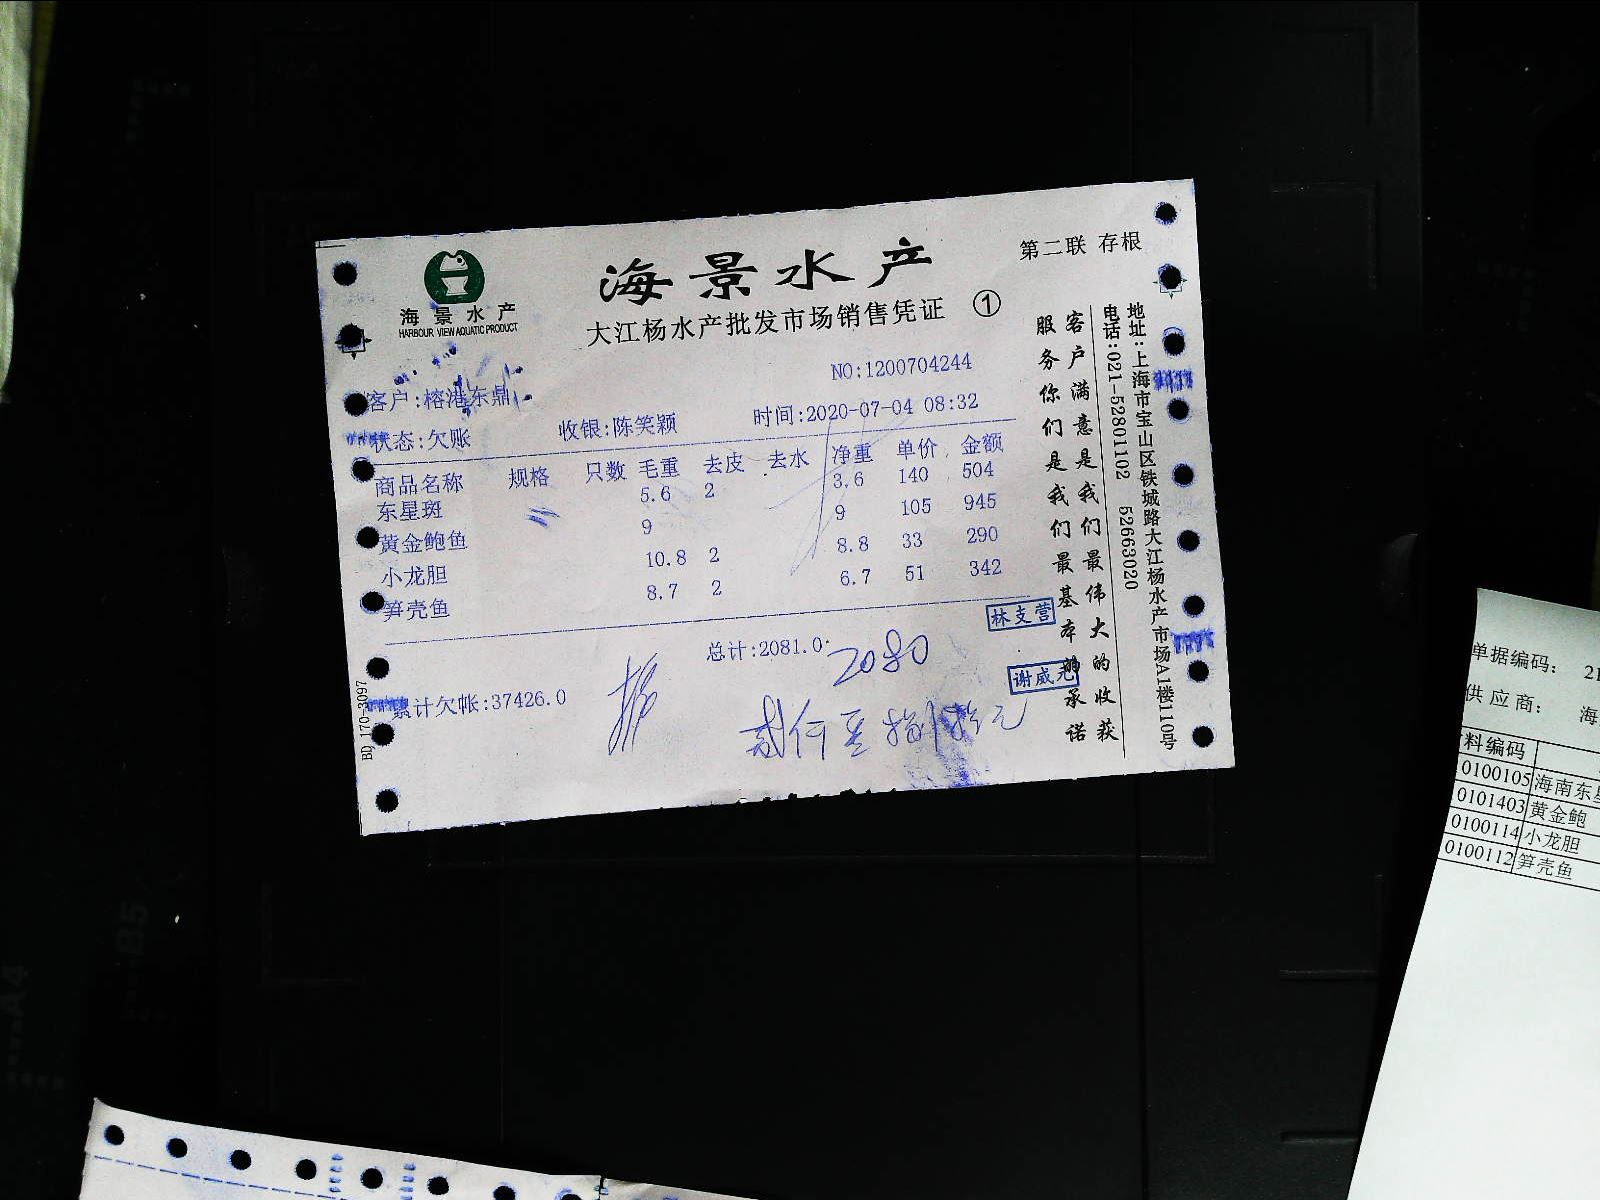 海景水产
HARBOUR VIEW AQUATIC PRODUCT
海景水产
大江杨水产批发市场销售凭证 ①
第二联 存根
NO:1200704244
客户:榕港东鼎
状态:欠账 收银:陈笑颖 时间:2020-07-04 08:32
商品名称 规格 只数 毛重 去皮 去水 净重 单价 金额
东星斑 5.6 2 3.6 140 504
黄金鲍鱼 9 9 105 945
小龙胆 10.8 2 8.8 33 290
笋壳鱼 8.7 2 6.7 51 342
总计:2081.0
2080
累计欠帐:37426.0
贰仟零捌拾元
林支营
谢威
BD 170-3097
客户满意是我们最伟大的收获
服务你们是我们最基本的承诺
地址:上海市宝山区铁城路大江杨水产市场A1楼110号
电话:021-52801102 52663020
单据编码: 21
供应商: 海
料编码
0100105 海南东星
0101403 黄金鲍
0100114 小龙胆
0100112 笋壳鱼
B5
A4